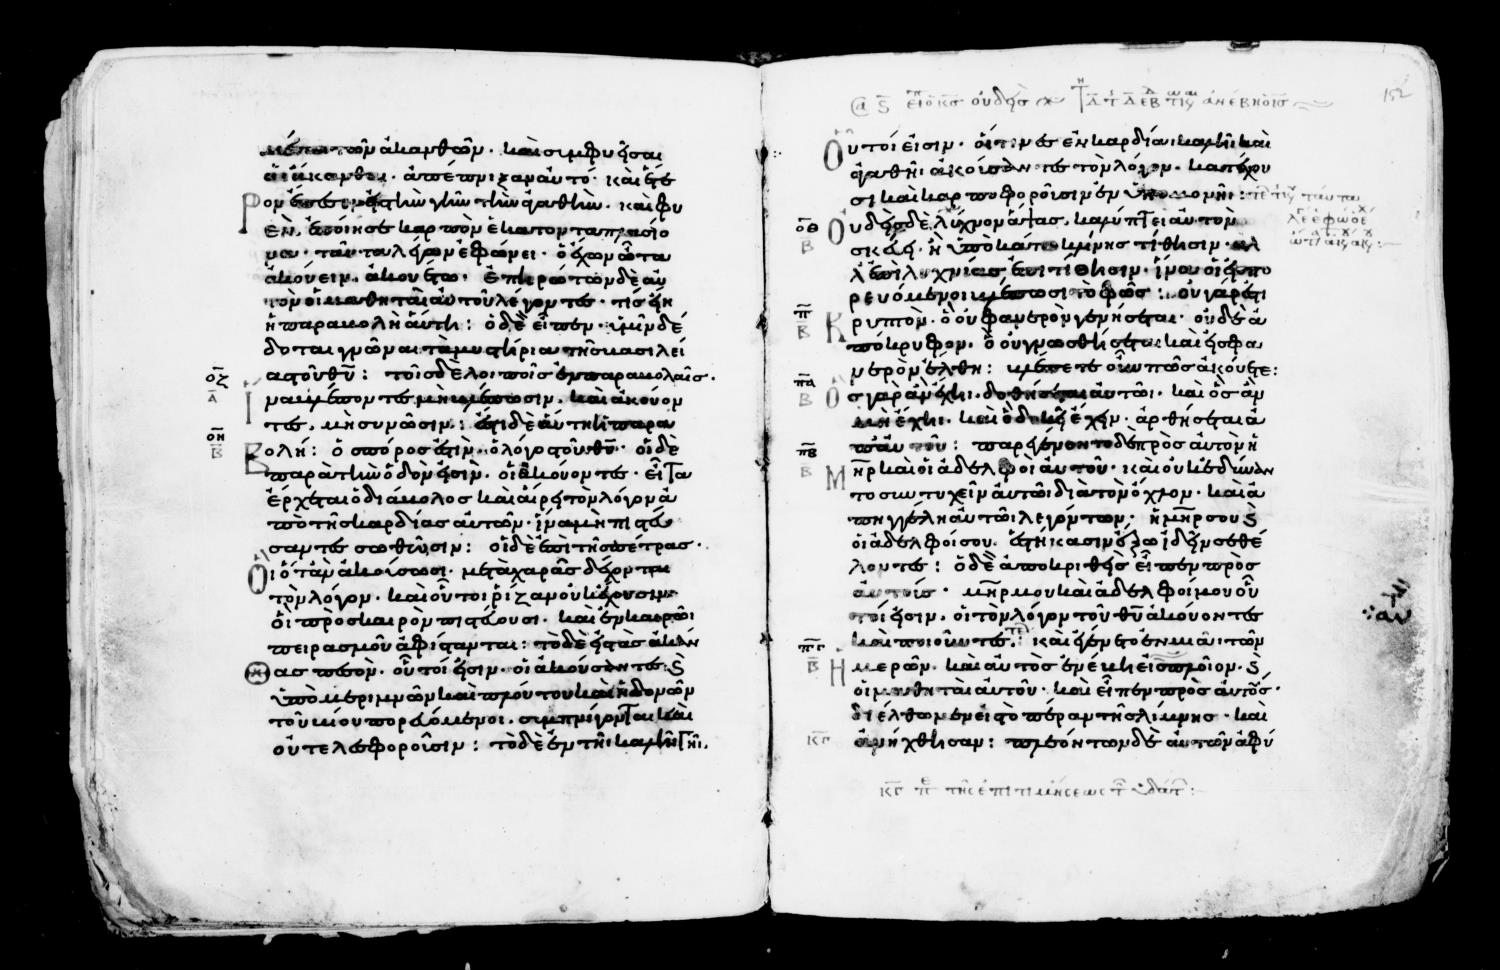 μέσω τῶν ἀκανθῶν· καὶ συμφυεῖσαι
αἱ ἄκανθαι· ἀπέπνιξαν αὐτό· καὶ ἕτε
ρον ἔπεσεν εἰς τὴν γῆν τὴν ἀγαθήν· καὶ φυ
ὲν, ἐποίησε καρπὸν ἑκατονταπλασίο
να· ταῦτα λέγων ἐφώνει· ὁ ἔχων ὦτα
ἀκούειν, ἀκουέτω· ἐπηρώτων δὲ αὐ
τὸν οἱ μαθηταὶ αὐτοῦ λέγοντες· τίς εἴη
ἡ παραβολὴ αὕτη: ὁ δὲ εἶπεν· ὑμῖν δέ
δοται γνῶναι τὰ μυστήρια τῆς βασιλεί
ας τοῦ θῦ: τοῖς δὲ λοιποῖς ἐν παραβολαῖς·
οζ
α
ἵνα βλέποντες μὴ βλέπωσιν, καὶ ἀκούον
τες, μὴ συνῶσιν: ἔστι δὲ αὕτη ἡ παρα
οη
β
βολή: ὁ σπόρος ἐστὶν ὁ λόγος τοῦ θῦ· οἱ δὲ
παρὰ τὴν ὁδὸν εἰσὶν, οἱ ἀκούοντες· εἶτα
ἔρχεται ὁ διάβολος καὶ αἴρει τὸν λόγον ἀ
πὸ τῆς καρδίας αὐτῶν· ἵνα μὴ πιστεύ
σαντες σωθῶσιν: οἱ δὲ ἐπὶ τῆς πέτρας·
οἳ ὅταν ἀκούσωσι· μετὰ χαρᾶς δέχονται
τὸν λόγον· καὶ οὗτοι ῥίζαν οὐκ ἔχουσιν·
οἳ πρὸς καιρὸν πιστεύουσι· καὶ ἐν καιρῶι
πειρασμοῦ ἀφίστανται: τὸ δὲ εἰς τὰς ἀκάν
θας πεσὸν· οὗτοί εἰσιν· οἱ ἀκούσαντες· ϛ
ὑπὸ μεριμνῶν καὶ πλούτου καὶ ἡδονῶν
τοῦ βίου πορευόμενοι, συμπνίγονται καὶ
οὐ τελεσφοροῦσιν: τὸ δὲ ἐν τῆι καλῆι γῆι·
152
οὗτοί εἰσιν· οἵτινες ἐν καρδίαι καλῆι καὶ
ἀγαθῆι ἀκούσαντες τὸν λόγον· κατέχου
σι καὶ καρποφοροῦσιν ἐν ὑπομονῆι:
οθ
β
οὐδεὶς δὲ λύχνον ἅψας, καλύπτει αὐτὸν
σκεύει· ἢ ὑποκάτω κλίνης τίθησιν· ἀλ
λ' ἐπὶ λυχνίας ἐπιτίθησιν· ἵνα οἱ εἰσπο
ρευόμενοι βλέπωσι τὸ φῶς: οὐ γάρ ἐστι
π
β
κρυπτὸν· ὃ οὐ φανερὸν γενήσεται· οὐδὲ ἀ
πόκρυφον· ὃ οὐ γνωσθήσεται καὶ εἰς φα
νερὸν ἔλθη: βλέπετε οὖν πῶς ἀκούετε:
πα
β
ὃς γὰρ ἂν ἔχηι· δοθήσεται αὐτῶι· καὶ ὃς ἂν
μὴ ἔχηι· καὶ ὃ δοκεῖ ἔχειν· ἀρθήσεται ἀ
π' αὐτοῦ: παρεγένοντο δὲ πρὸς αὐτὸν ἡ
πβ
β
μηρ καὶ οἱ ἀδελφοὶ αὐτοῦ· καὶ οὐκ ἐδύναν
το συντυχεῖν αὐτῶι διὰ τὸν ὄχλον· καὶ ἀ
πηγγέλη αὐτῶι λεγόντων· ἡ μηρ σου ϛ
οἱ ἀδελφοί σου, ἑστήκασιν ἔξω ἰδεῖν σε θέ
λοντες: ὁ δὲ ἀποκριθεὶς εἶπεν πρὸς
αὐτούς· μηρ μου καὶ ἀδελφοί μου οὗ
τοί εἰσιν, οἱ τὸν λόγον τοῦ θῦ ἀκούοντες
καὶ ποιοῦντες: καὶ ἐγένετο ἐν μιᾶι τῶν
πγ
β
ἡμερῶν· καὶ αὐτὸς ἐνέβη εἰς πλοῖον· ϛ
οἱ μαθηταὶ αὐτοῦ· καὶ εἶπεν πρὸς αὐτούς·
διέλθωμεν εἰς τὸ πέραν τῆς λίμνης· καὶ
κγ
ἀνήχθησαν: πλεόντων δὲ αὐτῶν ἀφύ